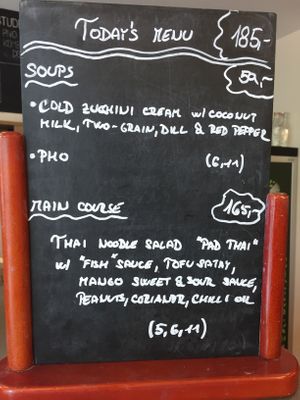 TODAY'S MENU 185,-
SOUPS 50,-
• COLD ZUCHINI CREAM w/ COCONUT
MILK, TWO-GRAIN, DILL & RED PEPPER
• PHO (6,11)
MAIN COURSE 165,-
THAI NOODLE SALAD "PAD THAI"
w/ "FISH" SAUCE, TOFU SATAY,
MANGO SWEET & SOUR SAUCE,
PEANUTS, CORIANDR, CHILLI OIL
(5,6,11)